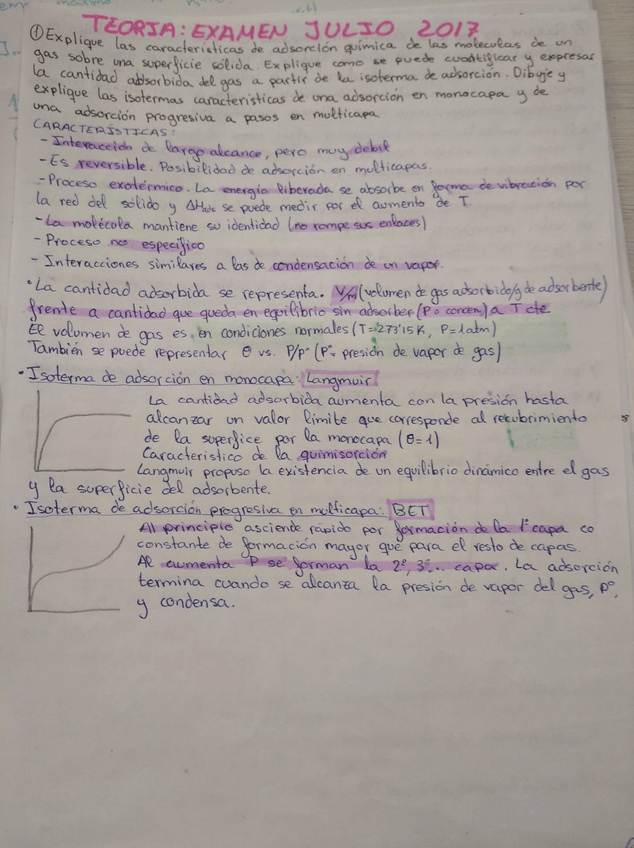 TEORIA: EXAMEN JULIO 2017
① Explique las características de adsorción química de las moléculas de un
gas sobre una superficie sólida. Explique como se puede cuantificar y expresar
la cantidad absorbida del gas a partir de la isoterma de adsorción. Dibuje y
explique las isotermas características de una adsorción en monocapa y de
una adsorción progresiva a pasos en multicapa
CARACTERÍSTICAS:
- Interacción de largo alcance, pero muy debil
- Es reversible. Posibilidad de adsorción en multicapas.
- Proceso exotérmico. La energía liberada se absorbe en forma de vibración por
la red del sólido y ΔHads se puede medir por el aumento de T
- La molécula mantiene su identidad (no rompe sus enlaces)
- Proceso no específico
- Interacciones similares a las de condensación de un vapor.
• La cantidad adsorbida se representa. V/m (volumen de gas adsorbido/g de adsorbente)
frente a cantidad que queda en equilibrio sin adsorber (P o concen) a T cte.
El volumen de gas es en condiciones normales (T=273'15K, P=1atm)
También se puede representar θ vs. P/P° (P°= presión de vapor de gas)
• Isoterma de adsorción en monocapa: Langmuir
La cantidad adsorbida aumenta con la presión hasta
alcanzar un valor límite que corresponde al recubrimiento
de la superfice por la monocapa (θ=1)
Característico de la quimisorción
Langmuir propuso la existencia de un equilibrio dinámico entre el gas
y la superficie del adsorbente.
• Isoterma de adsorción progresiva en multicapa: BET
Al principio asciende rápido por formación de la 1ª capa co
constante de formación mayor que para el resto de capas.
Al aumenta P se forman la 2ª, 3ª... capa. La adsorción
termina cuando se alcanza la presión de vapor del gas, P°,
y condensa.